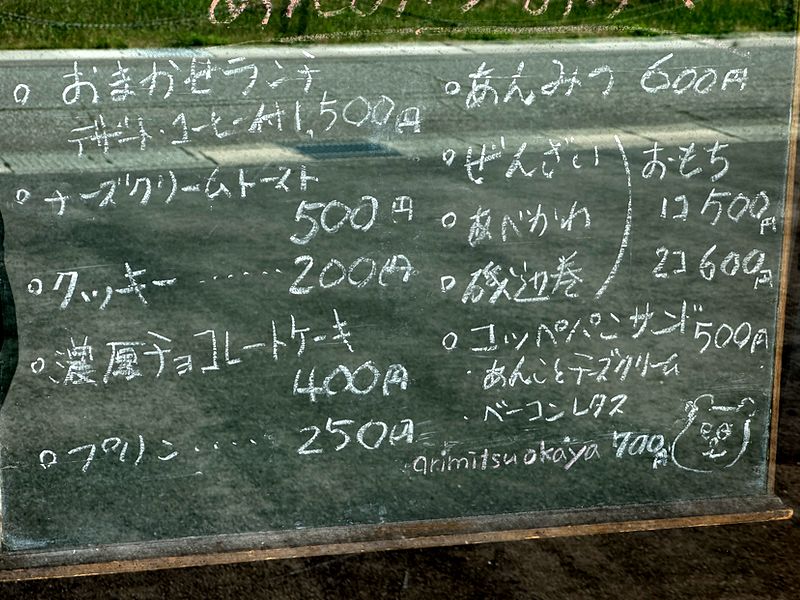 ○ おまかせランチ
デザート・コーヒー付1,500円
○ チーズクリームトースト
500円
○ クッキー ‥‥‥ 200円
○ 濃厚チョコレートケーキ
400円
○ プリン ‥‥‥ 250円
○ あんみつ 600円
○ ぜんざい
○ あべかわ
○ 磯辺巻
おもち
1コ 500円
2コ 600円
○ コッペパンサンド 500円
・あんことチーズクリーム
・ベーコンレタス
700円
arimitsuokaya